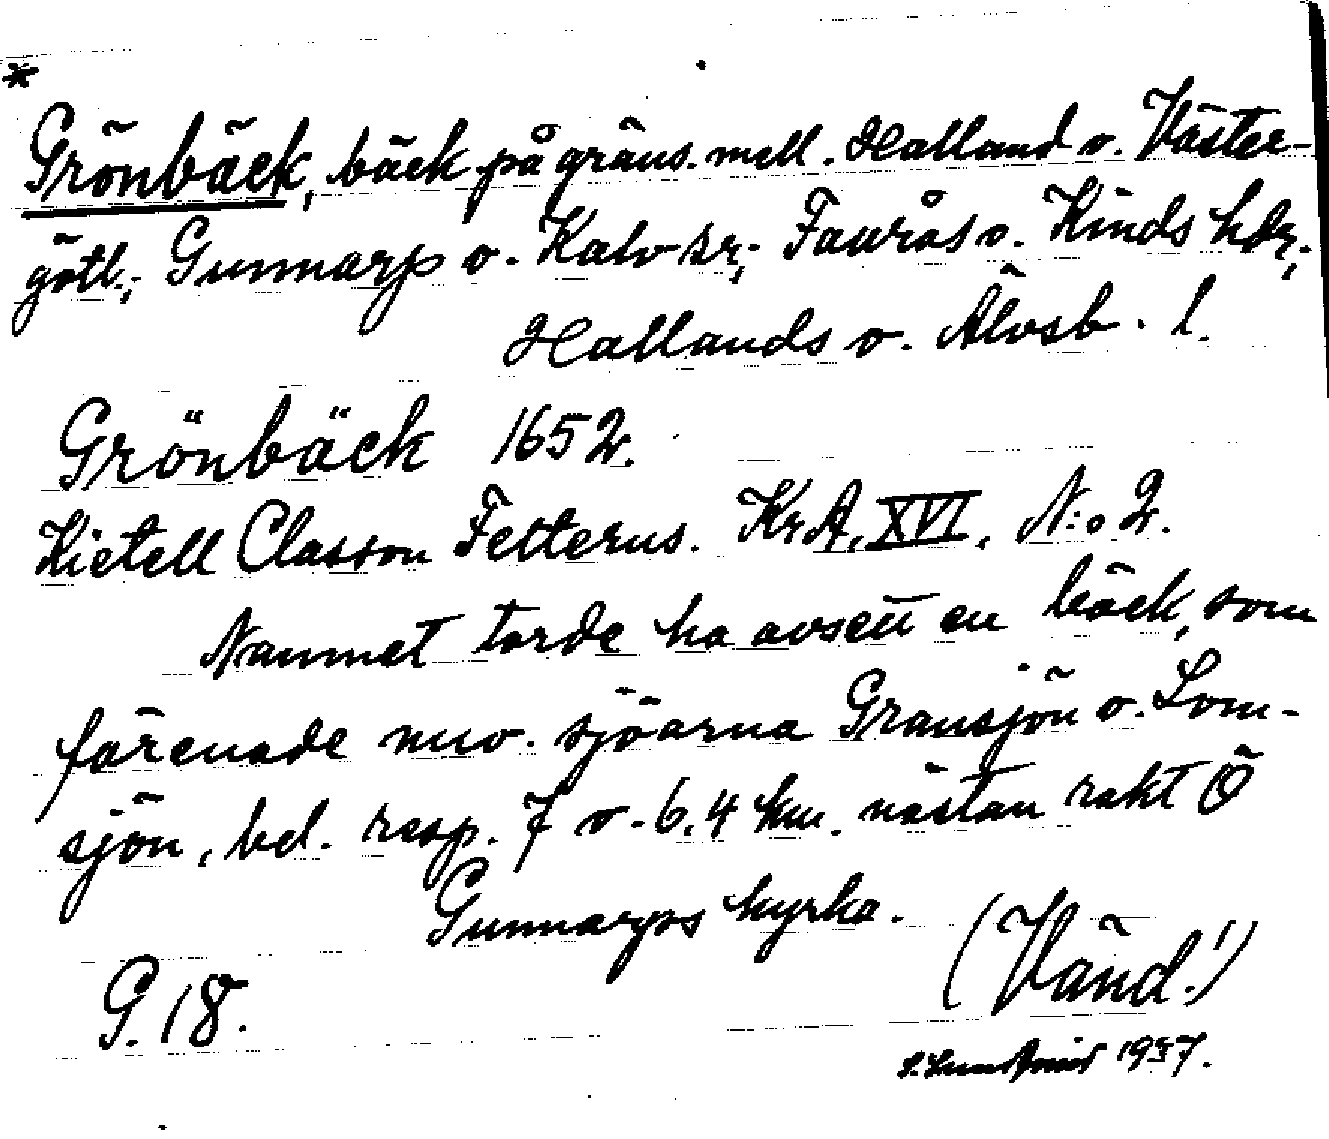 *
Grönbäck, bäck på gräns. mell. Halland o. Väster-
götl.; Gunnarp o. Kalv sr; Faurås o. Kinds hdr;
Hallands o. Älvsb. l.
Grönbäck 1652.
Kietell Classon Felterus. KrA, XVI, N:o 2.
Namnet torde ha avsett en bäck, som
förenade nuv. sjöarna Gransjön o. Lom-
sjön, bel. resp. 7 o. 6,4 km. nästan rakt Ö
Gunnarps kyrka.
(Vänd!)
G. 18.
1937.